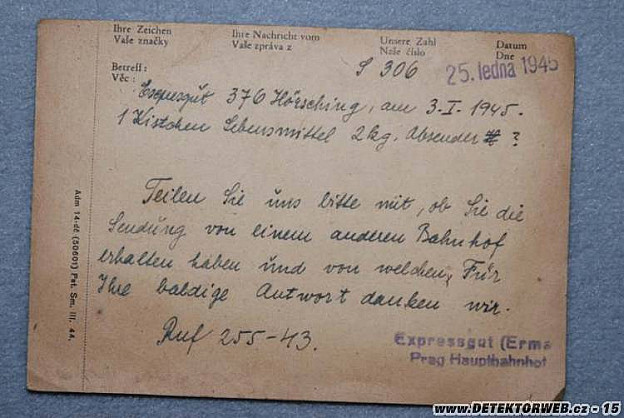 Ihre Zeichen Ihre Nachricht vom Unsere Zahl Datum
Vaše značky Vaše zpráva z Naše číslo Dne
S 306 25. ledna 1945
Betreff:
Věc:
Expressgut 376 Hörsching, am 3-I-1945.
1 Kistchen Lebensmittel 2 kg. Absender ?
Teilen Sie uns bitte mit, ob Sie die
Sendung von einem anderen Bahnhof
erhalten haben und von welchen. Für
Ihre baldige Antwort danken wir.
Ruf 255-43.
Expressgut (Erma
Prag Hauptbahnhof
Adm 14-dč (50601) Pet. Sm. III. 44.
www.DETEKTORWEB.cz - 15